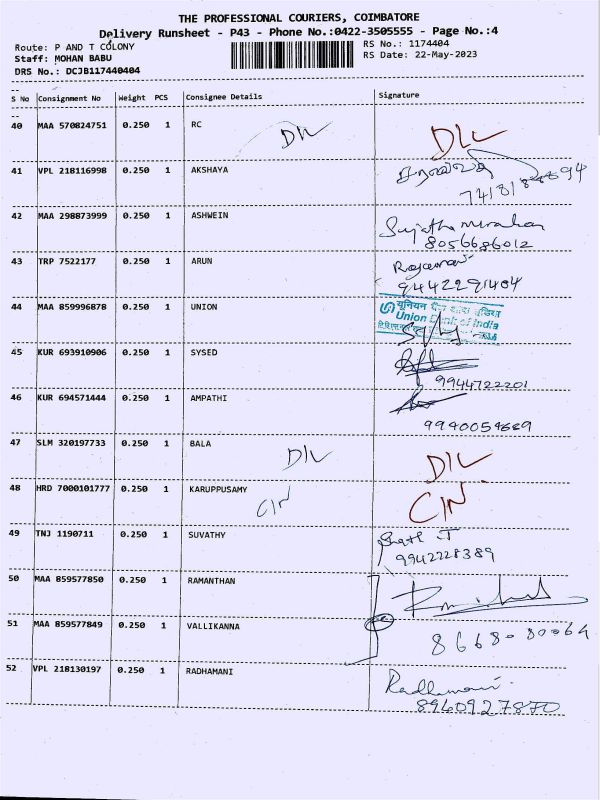 THE PROFESSIONAL COURIERS, COIMBATORE
Delivery Runsheet - P43 - Phone No.:0422-3505555 - Page No.:4
Route: P AND T COLONY
RS No.: 1174404
Staff: MOHAN BABU
RS Date: 22-May-2023
DRS No.: DCJB117440404
S No Consignment No Weight PCS Consignee Details Signature
40 MAA 570824751 0.250 1 RC
D/L D/L
41 VPL 218116998 0.250 1 AKSHAYA
42 MAA 298873999 0.250 1 ASHWEIN
8056686012
43 TRP 7522177 0.250 1 ARUN
9442291404
44 MAA 859996878 0.250 1 UNION
यूनियन बैंक
Union Bank of India
45 KUR 693910906 0.250 1 SYSED
9944722201
46 KUR 694571444 0.250 1 AMPATHI
9940054669
47 SLM 320197733 0.250 1 BALA
D/L D/L
48 HRD 7000101777 0.250 1 KARUPPUSAMY
C/N C/N
49 TNJ 1190711 0.250 1 SUVATHY
9942228389
50 MAA 859577850 0.250 1 RAMANTHAN
51 MAA 859577849 0.250 1 VALLIKANNA
8668080064
52 VPL 218130197 0.250 1 RADHAMANI
Radhamani
8960927870